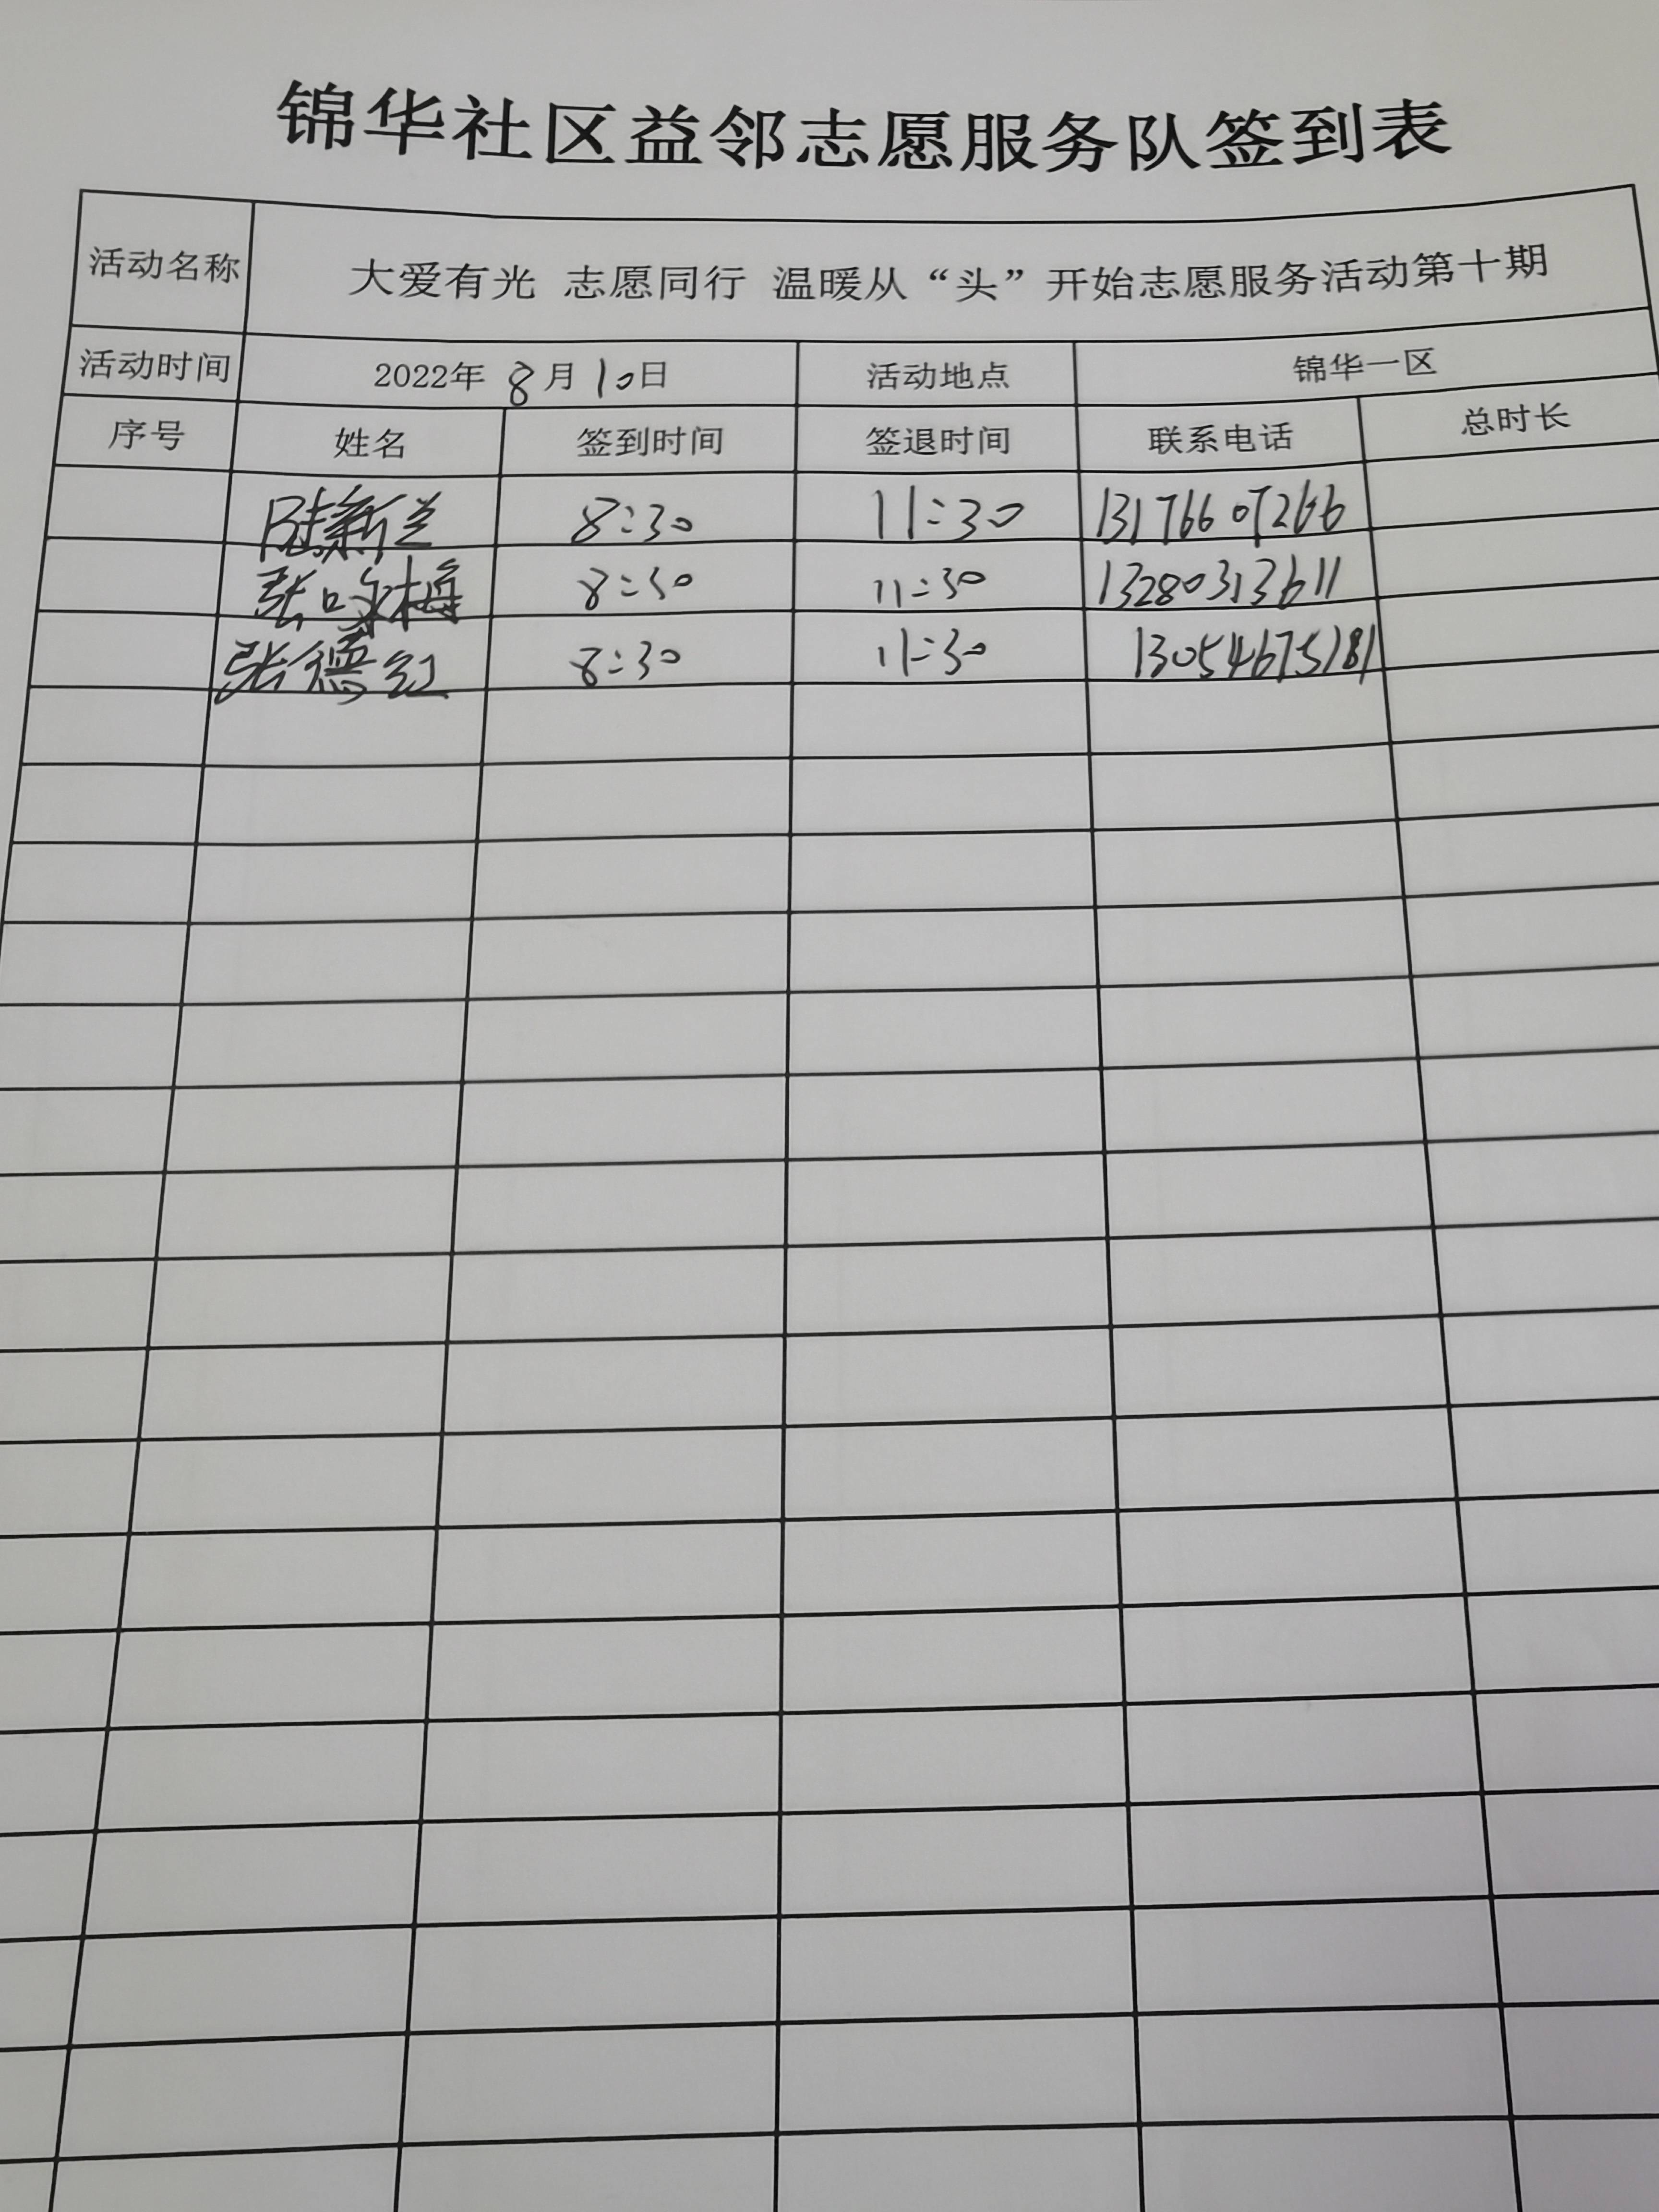 锦华社区益邻志愿服务队签到表
活动名称 大爱有光 志愿同行 温暖从“头”开始志愿服务活动第十期
活动时间 2022年 8月10日 活动地点 锦华一区
序号 姓名 签到时间 签退时间 联系电话 总时长
陆新兰 8:30 11:30 13176607266
张咏梅 8:30 11:30 13280313611
张德红 8:30 11:30 13054675181